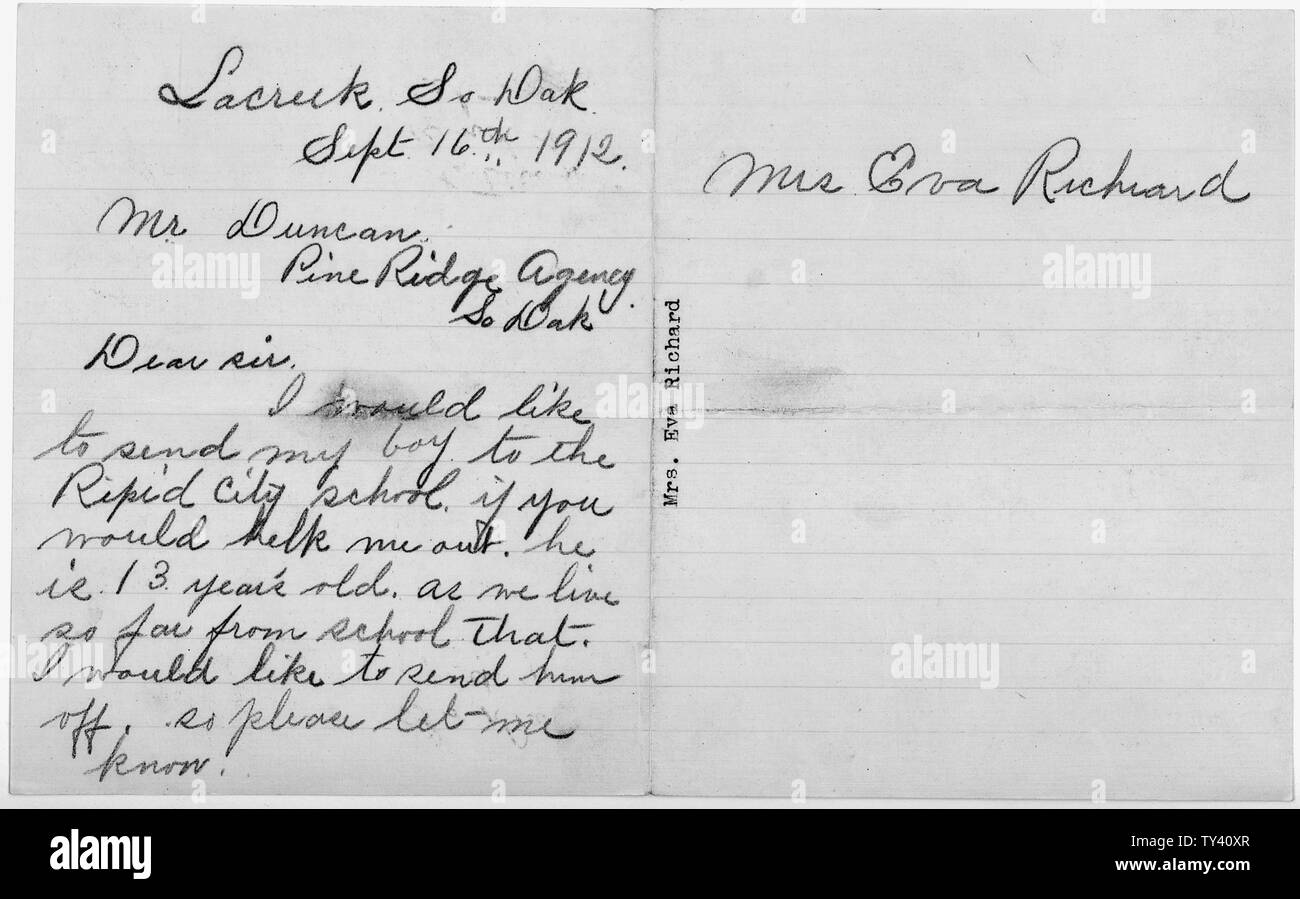 Lacreek. So Dak.
Sept. 16th 1912.
Mr. Duncan.
Pine Ridge Agency.
So Dak
Dear sir.
I would like
to send my boy. to the
Ripid City school. if you
would helk me out. he
is. 13. year's old. as we live
so far from school that.
I would like to send him
off. so please let me
know.
Mrs. Eva Richard
Mrs. Eva Richard
alamy
alamy
Image ID: TY40XR
www.alamy.com